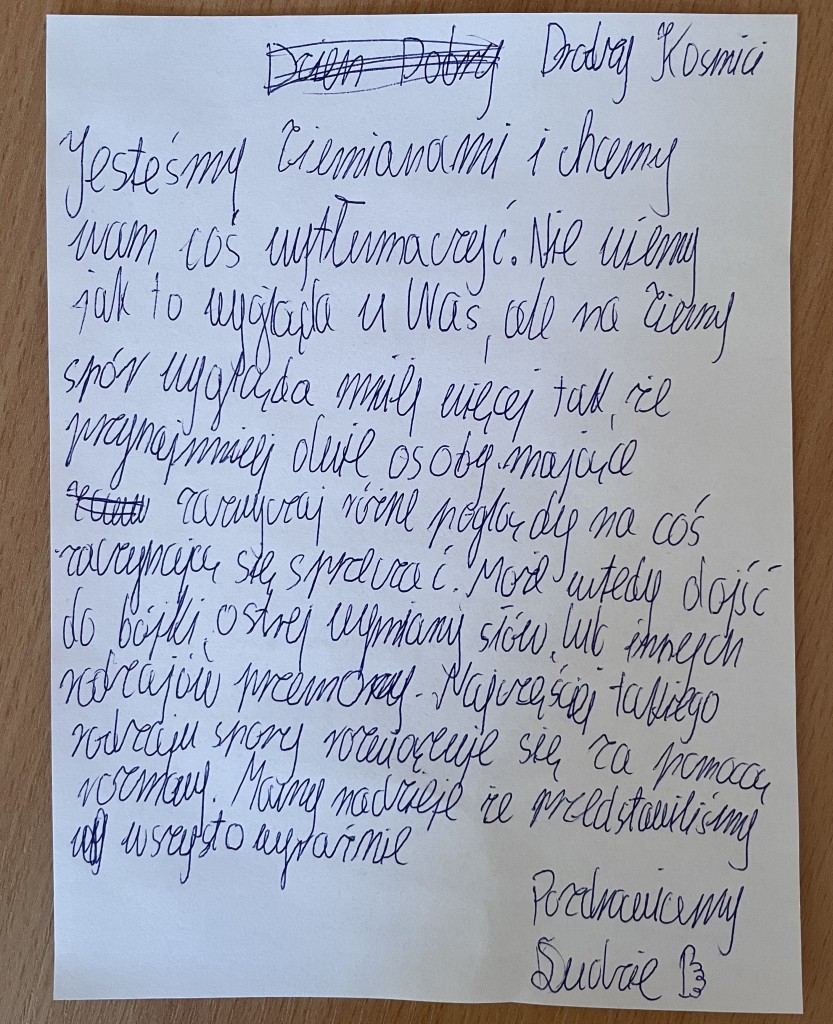 Dzień Dobry Drodzy Kosmici
Jesteśmy ziemianami i chcemy
wam coś wytłumaczyć. Nie wiemy
jak to wygląda u Was, ale na ziemy
spór wygląda mniej więcej tak, że
przynajmniej dwie osoby mające
zazwyczaj różne poglądy na coś
zaczynają się sprzeczać. Może wtedy dojść
do bójki, ostrej wymiany słów, lub innych
rodzajów przemocy. Najczęściej takiego
rodzaju spory rozwiązuje się za pomocą
rozmowy. Mamy nadzieję że przedstawiliśmy
wszysto wyraźnie
Pozdrawiamy
Ludzie